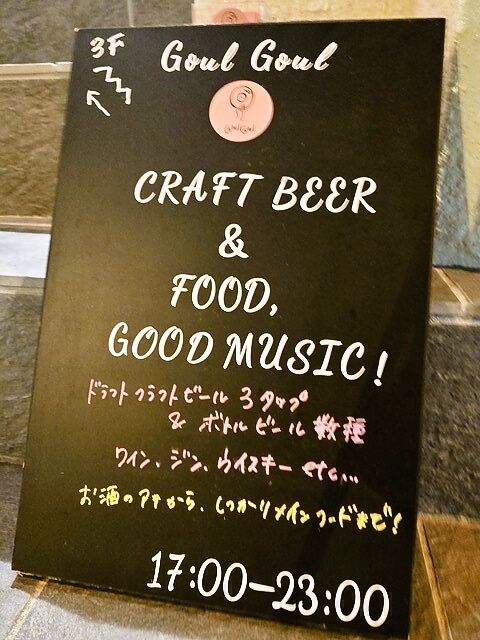 3F
Goul Goul
GoulGoul
CRAFT BEER
&
FOOD,
GOOD MUSIC!
ドラフトクラフトビール 3タップ
& ボトルビール 数種
ワイン、ジン、ウイスキー etc...
お酒のアテから、しっかりメインフードまで!
17:00-23:00